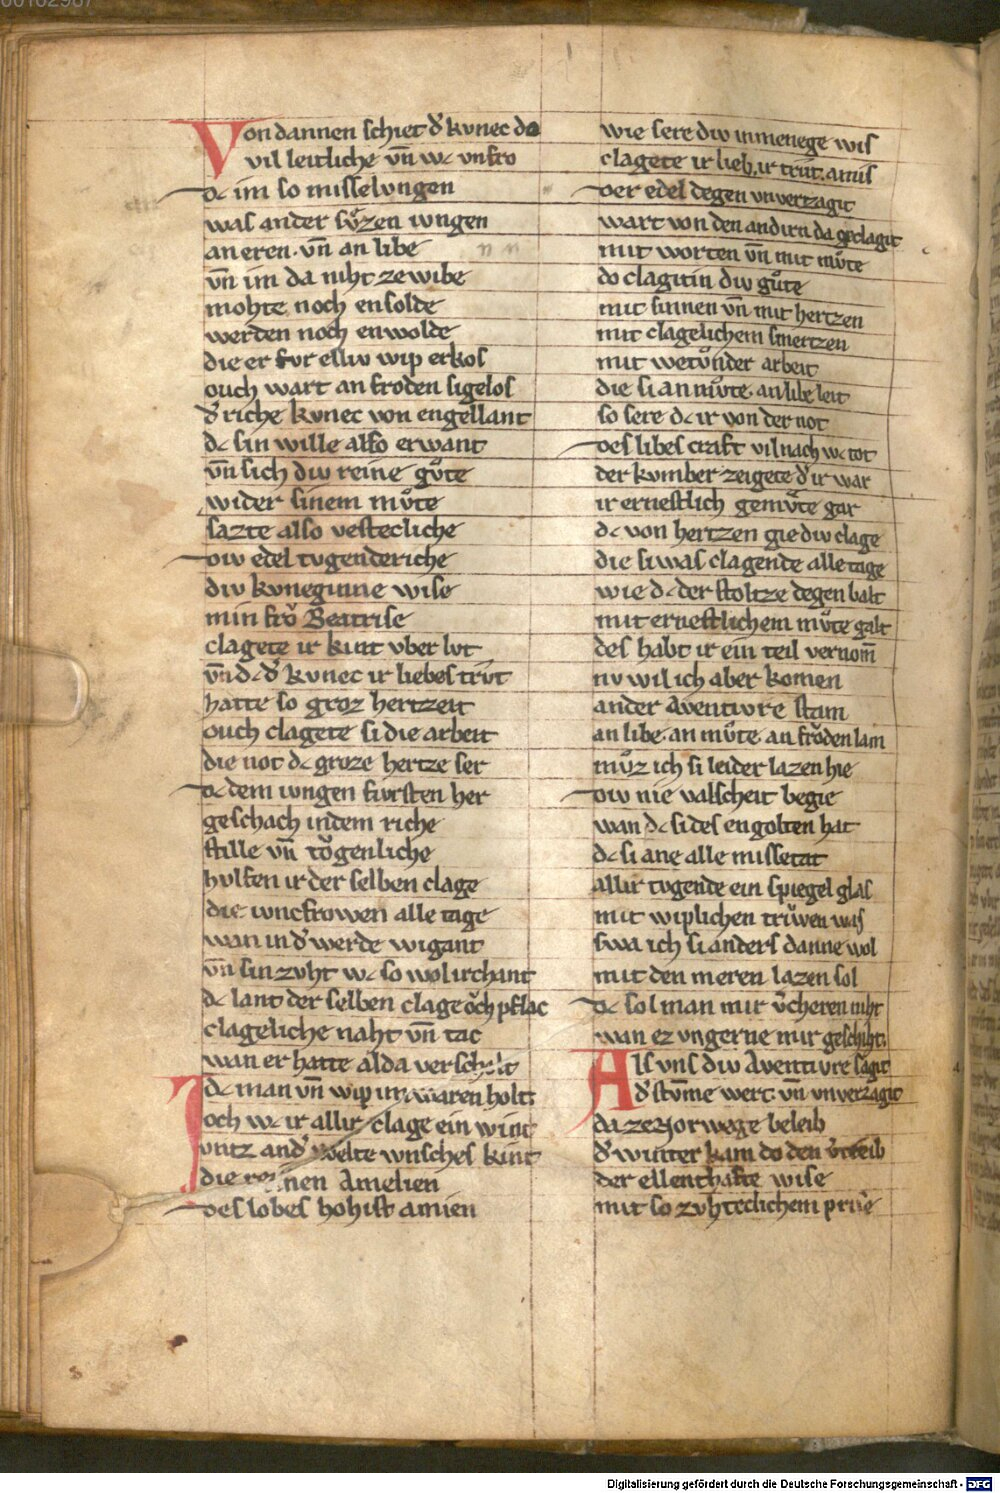 Von dannen schiet d͛ kvnec do
vil leitliche vn̄ wc vnfro
dc im so misselvngen
was an der sv̊zen ivngen
an eren· vn̄ an libe
vn̄ im da niht ze wibe
mohte noch ensolde
werden noch enwolde
die er fvr elliv wip erkos
ouch wart an froden sigelos
d͛ riche kvnec von engellant
dc sin wille also erwant
vn̄ sich div reine gv̊te
wider sinem mv̊te
sazte also vestecliche
div edel tvgenderiche
div kvneginne wise
min frǒ Beatrise
clagete ir kint vber lvt
vn̄ dc d͛ kvnec ir liebes trv̂t
hatte so groz hertzeit
ouch clagete si die arbeit
die not dc groze hertze ser
dc dem ivngen fvrsten her
geschach in dem riche
stille vn̄ tǒgenliche
hvlfen ir der selben clage
die ivncfrowen alle tage
wan in d͛ werde wigant
vn̄ sin zvht wc so wol irchant
dc lant der selben clage ǒch pflac
clageliche naht vn̄ tac
wan er hatte alda verscholt
dc man vn̄ wip im waren holt
Ioch wc ir allir clage ein wint
vntz an d͛ welte wnsches kint
die reinen Amelien
des lobes hohist amien
wie sere div inmenege wis
clagete ir lieb, ir trut· amis
der edel degen vnverzagit
wart von den andirn da geclagit
mit worten vn̄ mit mv̊te
do clagitin div gv̊te
mit sinnen vn̄ mit hertzen
mit clagelichem smertzen
mit wetv̊nder arbeit
die si an mv̊te· an libe leit
so sere dc ir von der not
des libes craft vil nach wc tot
der kvmber zeigete d͛ ir war
ir ernestlich gemv̊te gar
dc von hertzen gie div clage
die si was clagende alle tage
wie dc der stoltze degen balt
mit ernestlichem mv̊te galt
des habt ir ein teil vernom̄
nv wil ich aber komen
an der Aventivre stam
an libe· an mv̊te· an frǒden lam
mv̊z ich si leider lazen hie
div nie valscheit begie
wan dc si des engolten hat
dc si ane alle missetat
allir tvgende ein spiegel glas
mit wiplichen trv̊wen was
swa ich si anders danne wol
mit den meren lazen sol
dc sol man mir v͛cheren niht
wan ez vngerne mir geschiht·
Als vns div Aventivre sagit
d͛ stv̄me wert· vn̄ vnverzagit
da ze Norwege beleib
d͛ winter kam do den v͛treib
der ellenthafte wise
mit so zvhteclichem prise